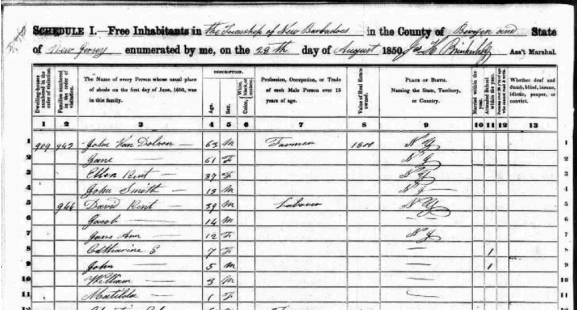 SCHEDULE I.—Free Inhabitants in the Township of New Barbadoes in the County of Bergen and State
of New Jersey enumerated by me, on the 28th day of August 1850. Ass't Marshal.
Dwelling-houses numbered in the order of visitation.
Families numbered in the order of visitation.
The Name of every Person whose usual place of abode on the first day of June, 1850, was in this family.
DESCRIPTION.
Age.
Sex.
Profession, Occupation, or Trade of each Male Person over 15 years of age.
Value of Real Estate owned.
PLACE OF BIRTH.
Naming the State, Territory, or Country.
Married within the year.
Attended School within the year.
Whether deaf and dumb, blind, insane, idiotic, pauper, or convict.
1 2 3 4 5 6 7 8 9 10 11 12 13
1 John Van Dolson — 63 M Farmer N J 1
2 Jane — 61 F N J 2
3 Ellen Kent — 37 F 3
4 John Smith — 13 M N J 4
5 David Kent — 39 M Laborer N Y 5
6 Jacob — 14 M — 6
7 Jane Ann — 12 F N J 7
8 Catharine E 7 F — 1 8
9 John — 5 M — 1 9
10 William — 3 M — 10
11 Matilda — 1 F — 11